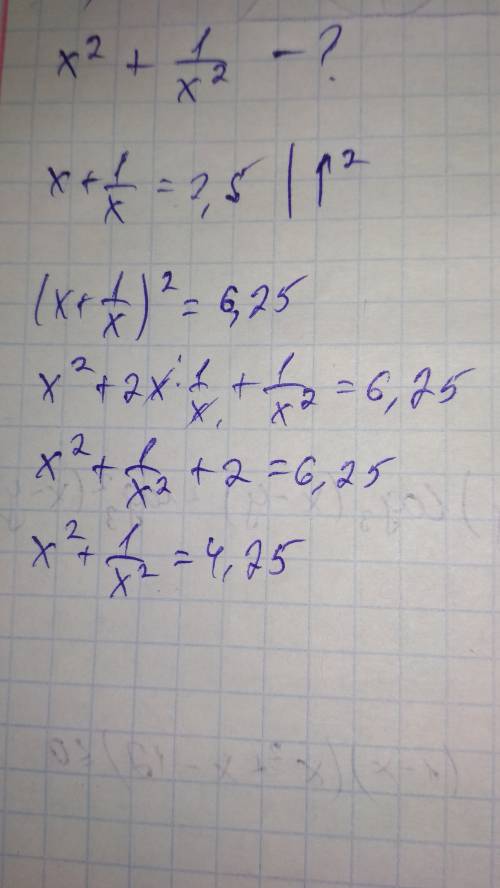 x² + 1/x² - ?
x + 1/x = 2,5 | ↑²
(x + 1/x)² = 6,25
x² + 2x · 1/x + 1/x² = 6,25
x² + 1/x² + 2 = 6,25
x² + 1/x² = 4,25